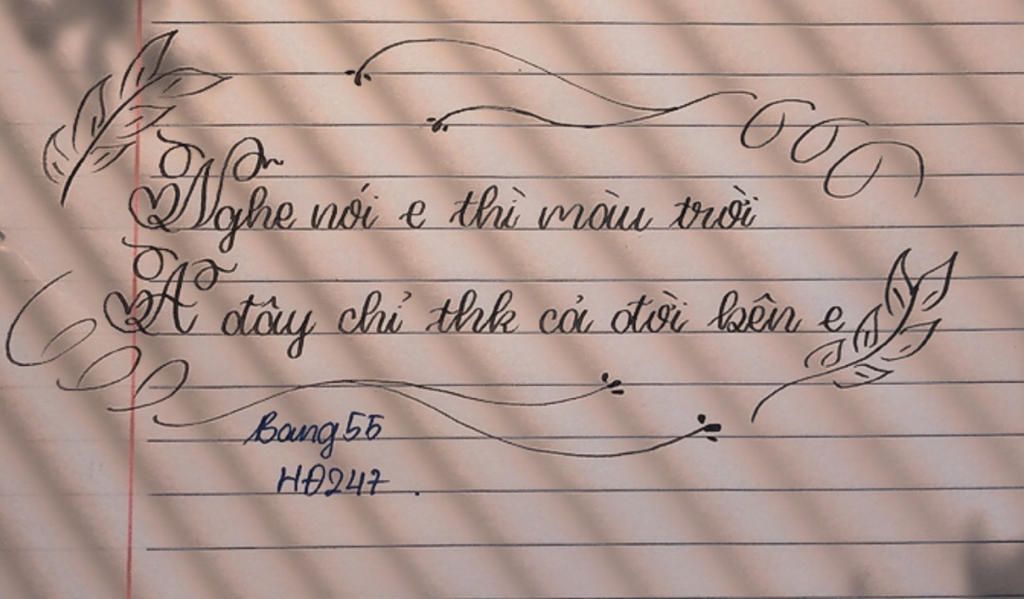 Nghe nói e thì màu trời
A đây chỉ thk cả đời bên e
Bang55
HĐ247.